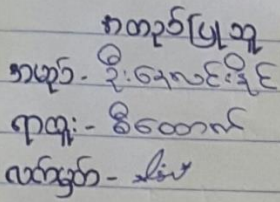 အတည်ပြုသူ
အမည် - ဦးနေလင်းနိုင်
ရာထူး - စီထောက်
လက်မှတ် -